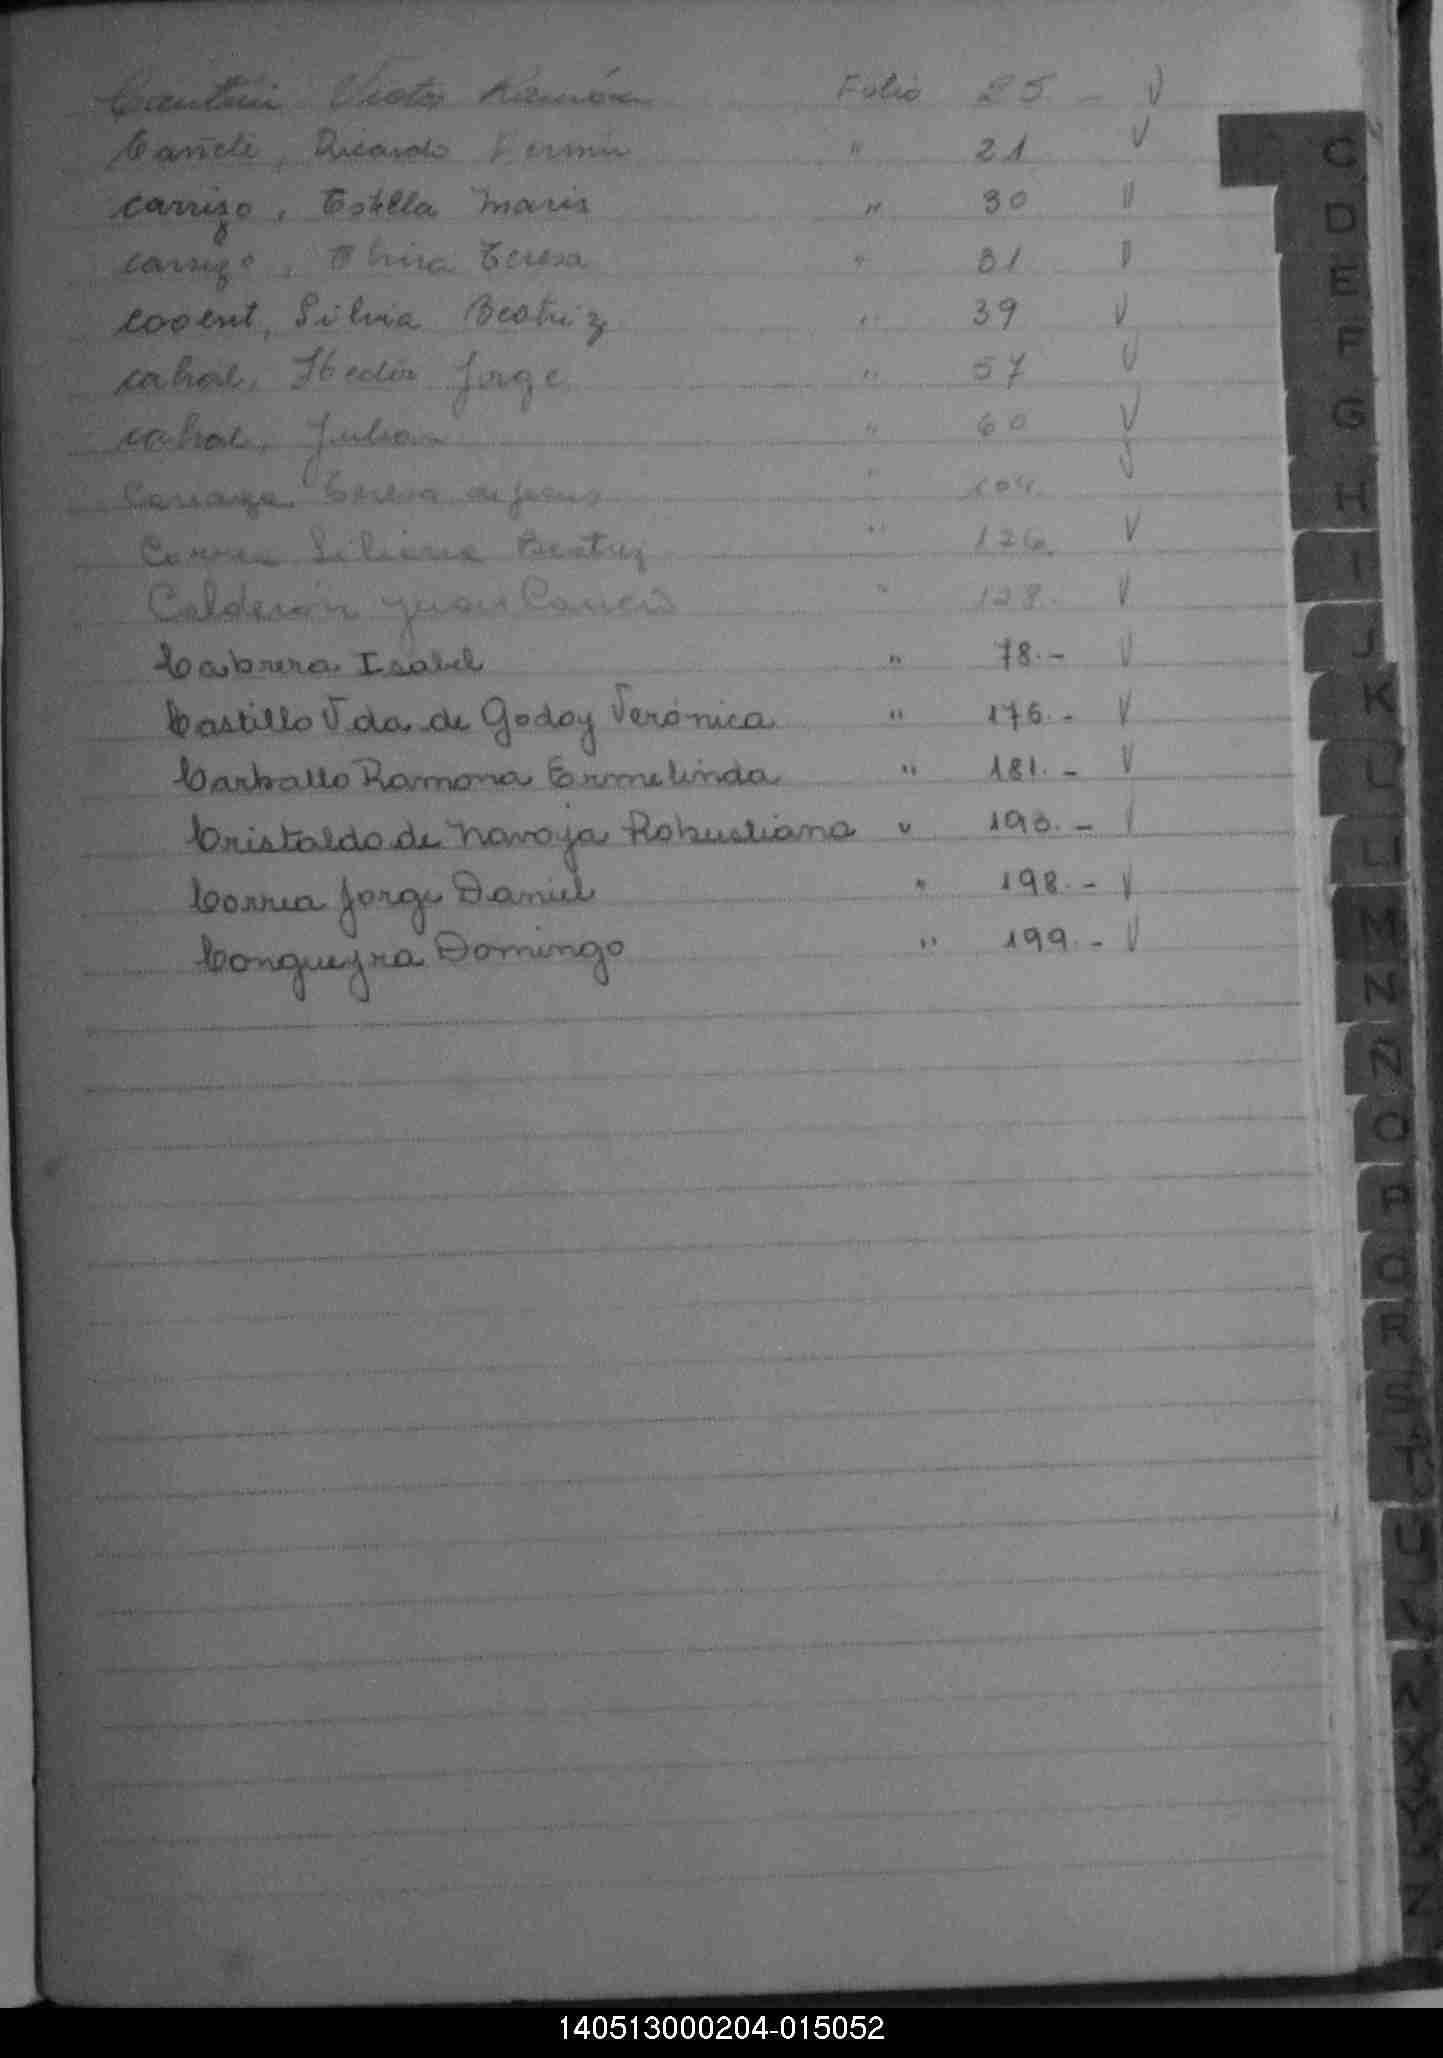 Victor Ramón Folio 25 - V
Cañete, Ricardo Fermin " 21 V
carrizo, Estella Maris " 30 V
carrizo, Elvira Teresa " 31 V
Silvia Beatriz " 39 V
cabral, Hector Jorge " 57 V
cabral, Julian " 60 V
Teresa de Jesus " 104. V
Correa Liliana Beatriz " 126. V
Calderón Juan " 128. V
Cabrera Isabel " 78.- V
Castillo Vda. de Godoy Verónica " 176.- V
Carballo Ramona Ermelinda " 181.- V
Cristaldo de Navaja Robustiana " 193.- V
Correa Jorge Daniel " 198.- V
Congueyra Domingo " 199.- V
C
D
E
F
G
H
I
J
K
L
LL
M
N
Ñ
O
P
Q
R
S
T
U
V
X
Y
Z
140513000204-015052